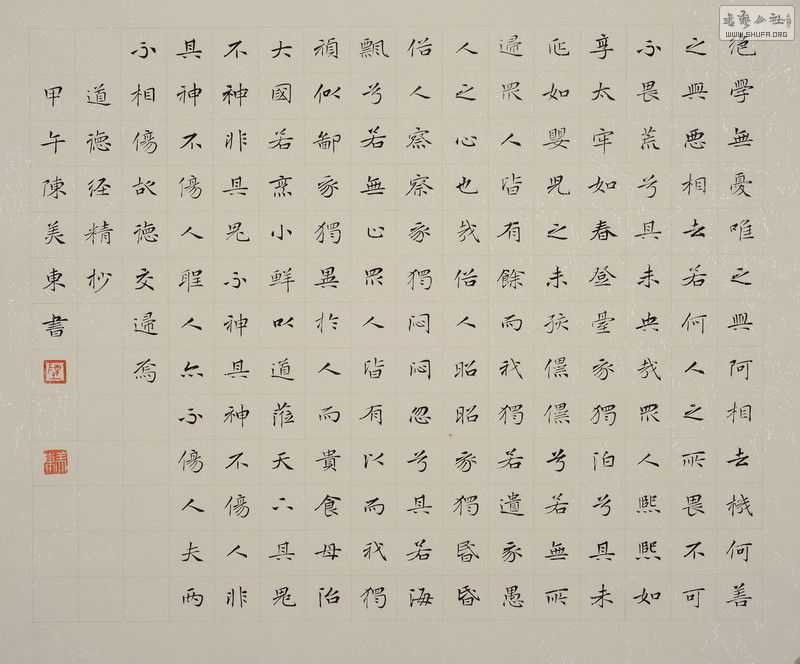 絕學無憂唯之與阿相去機何善
之與惡相去若何人之所畏不可
不畏荒兮其未央哉眾人熙熙如
享太牢如春登臺我獨泊兮其未
兆如嬰兒之未孩儽儽兮若無所
歸眾人皆有餘而我獨若遺我愚
人之心也哉俗人昭昭我獨昏昏
俗人察察我獨悶悶忽兮其若海
飄兮若無止眾人皆有以而我獨
頑似鄙我獨異於人而貴食母治
大國若烹小鮮以道蒞天下其鬼
不神非其鬼不神其神不傷人非
其神不傷人聖人亦不傷人夫兩
不相傷故德交歸焉
道德經精抄
甲午陳美東書
美東
书艺公社
WWW.SHUFA.ORG